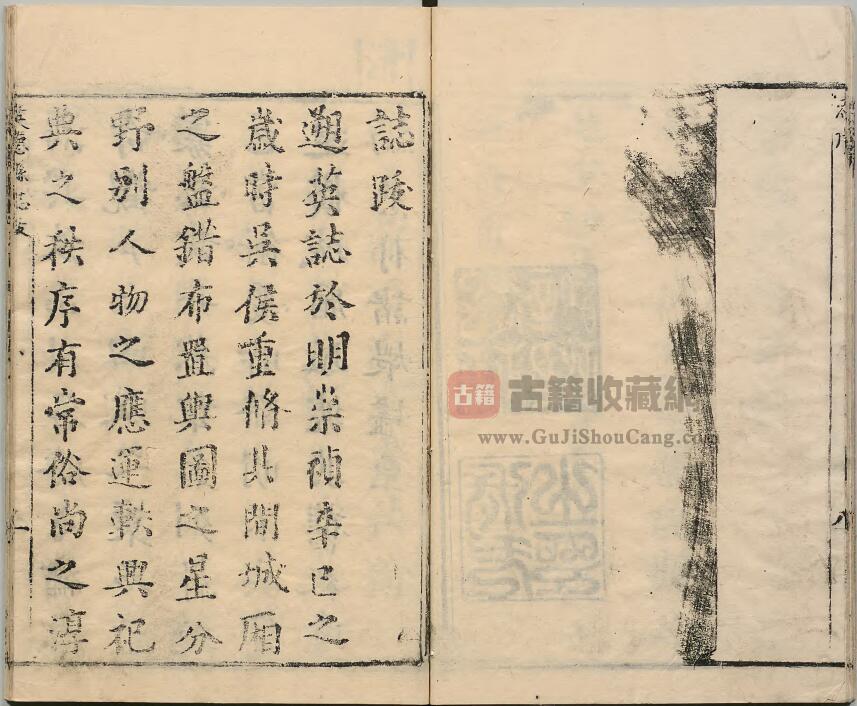 誌跋
遡英誌於明崇禎辛巳之
歲時吳侯重脩其間城廂
之盤錯布置輿圖之星分
野別人物之應運軼興祀
典之秩序有常俗尚之淳
英德縣志跋
古籍
古籍收藏網
www.GuJiShouCang.com